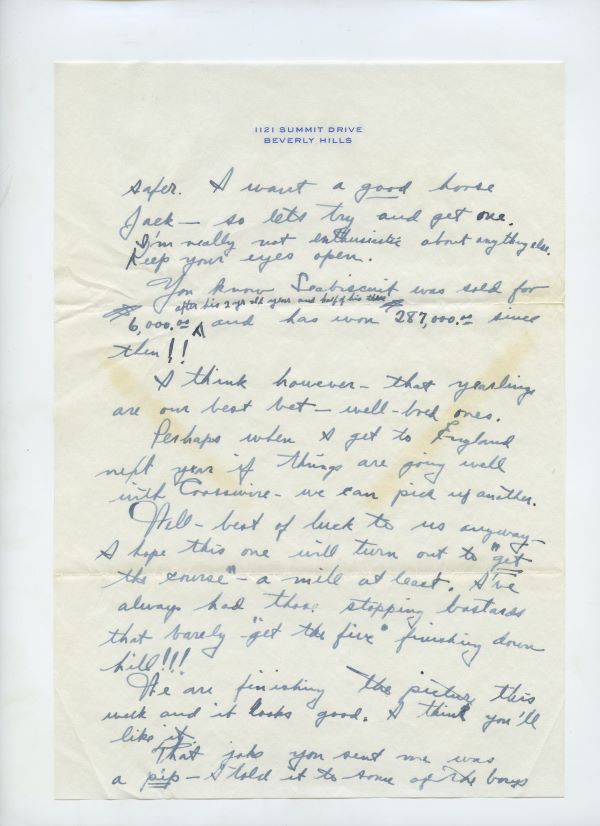 1121 SUMMIT DRIVE
BEVERLY HILLS
safer. I want a good horse
Jack — so lets try and get one.
I'm really not enthusiastic about anything else.
Keep your eyes open.
You know Seabiscuit was sold for
after his 2 yr old year and half of his three
$6,000.00 ^ and has won $287,000.00 since
then!!
I think however — that yearlings
are our best bet — well-bred ones.
Perhaps when I get to England
next year if things are going well
with Crosswire — we can pick up another.
Well — best of luck to us anyway —
I hope this one will turn out to "get
the course" — a mile at least. I've
always had those stopping bastards
that barely "get the five" finishing down
hill!!!
We are finishing the picture this
week and it looks good. I think you'll
like it.
That joke you sent me was
a pip — I told it to some of the boys